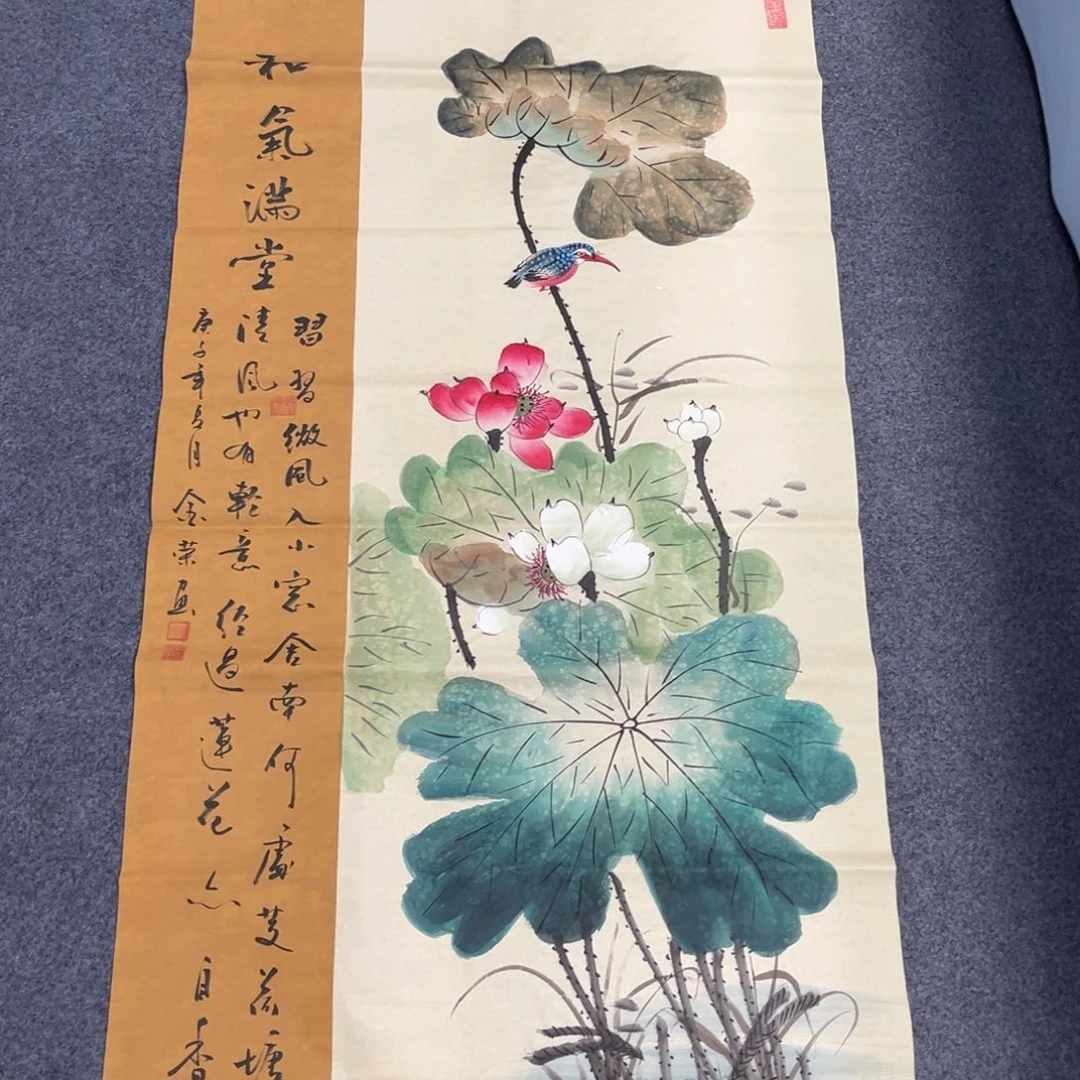 和氣滿堂
習習微風入小窓舍南何處芰荷塘
清風也有輕意經過蓮花亦自香
庚子年春月金榮画